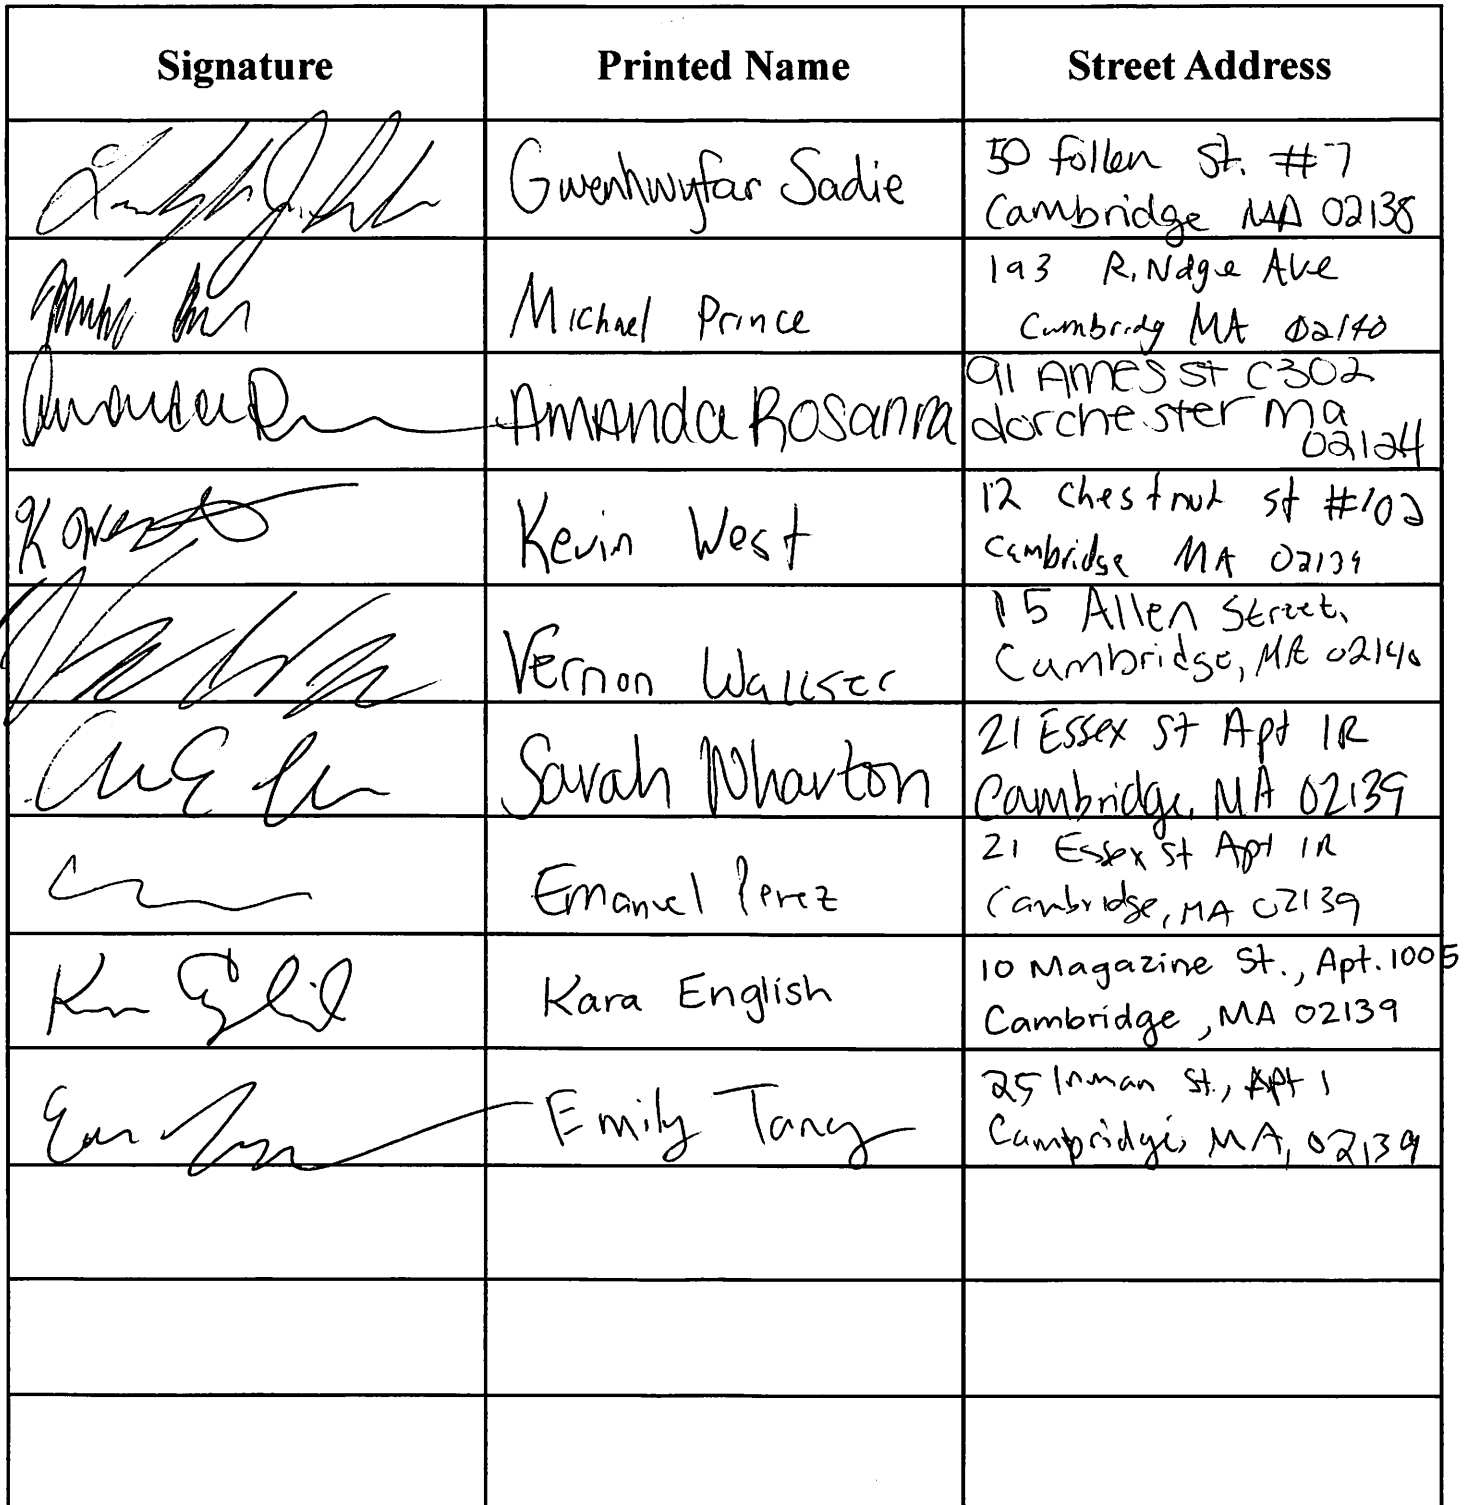 Signature Printed Name Street Address
Gwenhwyfar Sadie
50 Follen St. #7
Cambridge MA 02138
Michael Prince
193 Rindge Ave
Cambridg MA 02140
Amanda Rosanna
91 Ames st C302
dorchester Ma
02124
K West
Kevin West
12 Chestnut st #102
Cambridge MA 02139
Vernon Walkser
15 Allen Street,
Cambridge, MA 02140
Sarah Wharton
21 Essex St Apt 1R
Cambridge, MA 02139
Emanuel Perez
21 Essex St Apt 1R
Cambridge, MA 02139
Kara English
10 Magazine St., Apt. 1005
Cambridge, MA 02139
Emily Tang
25 Inman St., Apt 1
Cambridge, MA, 02139